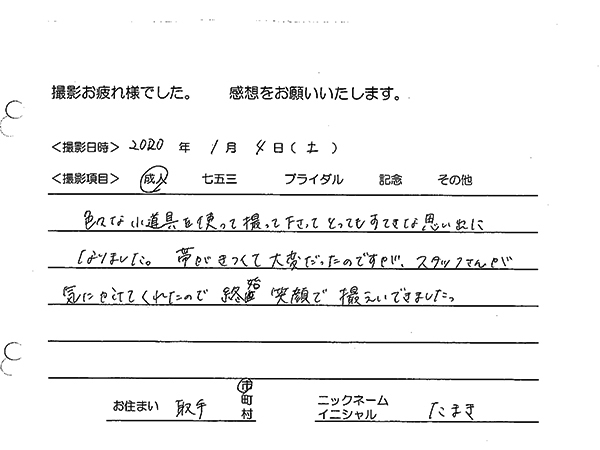 撮影お疲れ様でした。　感想をお願いいたします。
＜撮影日時＞ 2020 年 1 月 4 日（土）
＜撮影項目＞ 成人 七五三 ブライダル 記念 その他
色々な小道具を使って撮って下さってとってもすてきな思い出に
なりました。帯がきつくて大変だったのですが、スタッフさんが
気にかけてくれたので 終始 笑顔で 撮えいできましたっ
お住まい 取手 市町村 ニックネーム イニシャル たまき